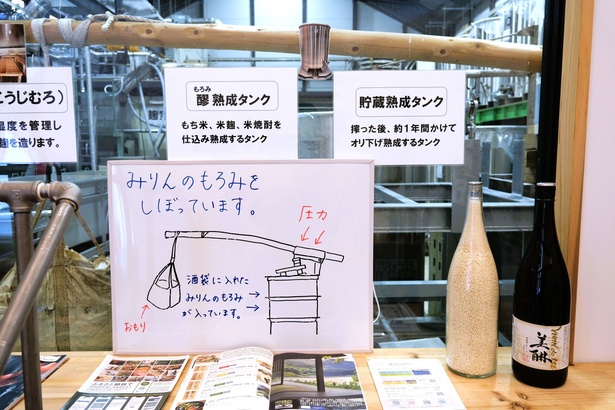 こうじむろ)
湿度を管理し
麹を造ります。
もろみ
醪 熟成タンク
もち米、米麹、米焼酎を
仕込み熟成するタンク
貯蔵熟成タンク
搾った後、約1年間かけて
オリ下げ熟成するタンク
みりんのもろみを
しぼっています。
圧力
酒袋に入れた
みりんのもろみ
が入っています。
おもり
美酣